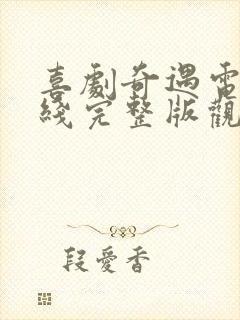 喜劇奇遇電
綫完整版觀
段愛香